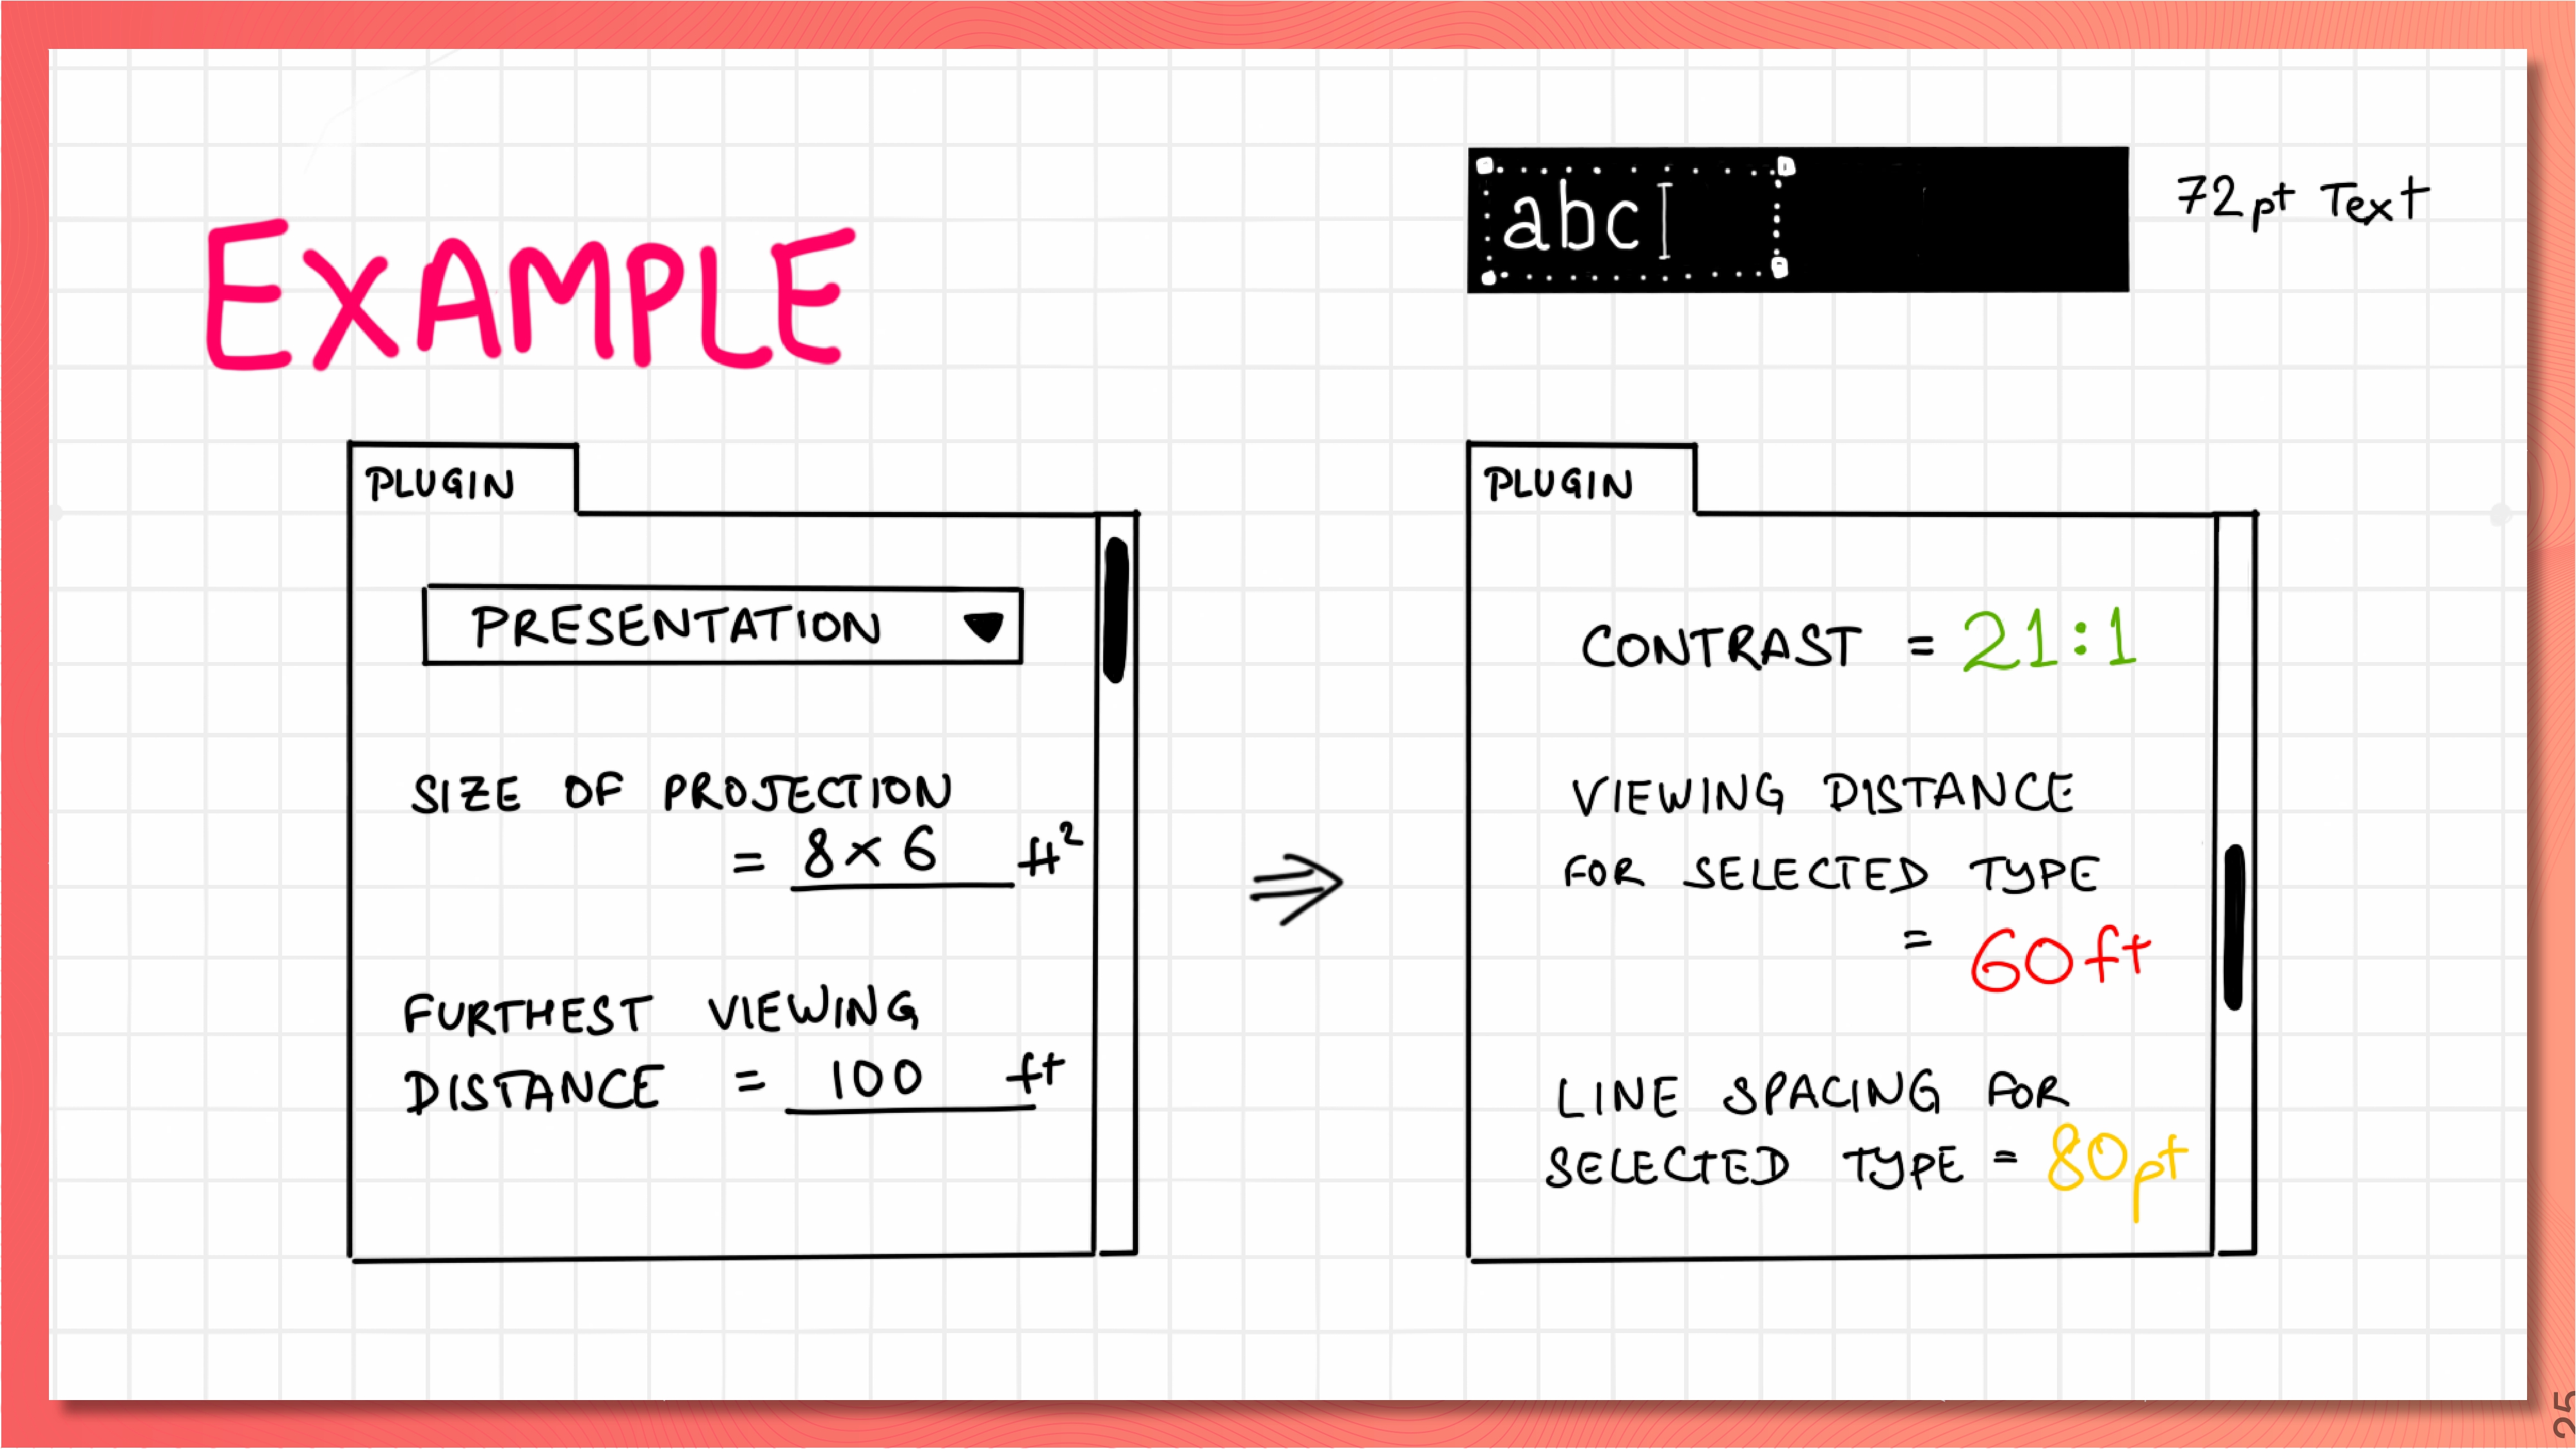 EXAMPLE
abc
72pt Text
PLUGIN
PRESENTATION
SIZE OF PROJECTION
= 8 × 6 ft²
FURTHEST VIEWING
DISTANCE = 100 ft
⇒
PLUGIN
CONTRAST = 21:1
VIEWING DISTANCE
FOR SELECTED TYPE
= 60ft
LINE SPACING FOR
SELECTED TYPE = 80pt
25